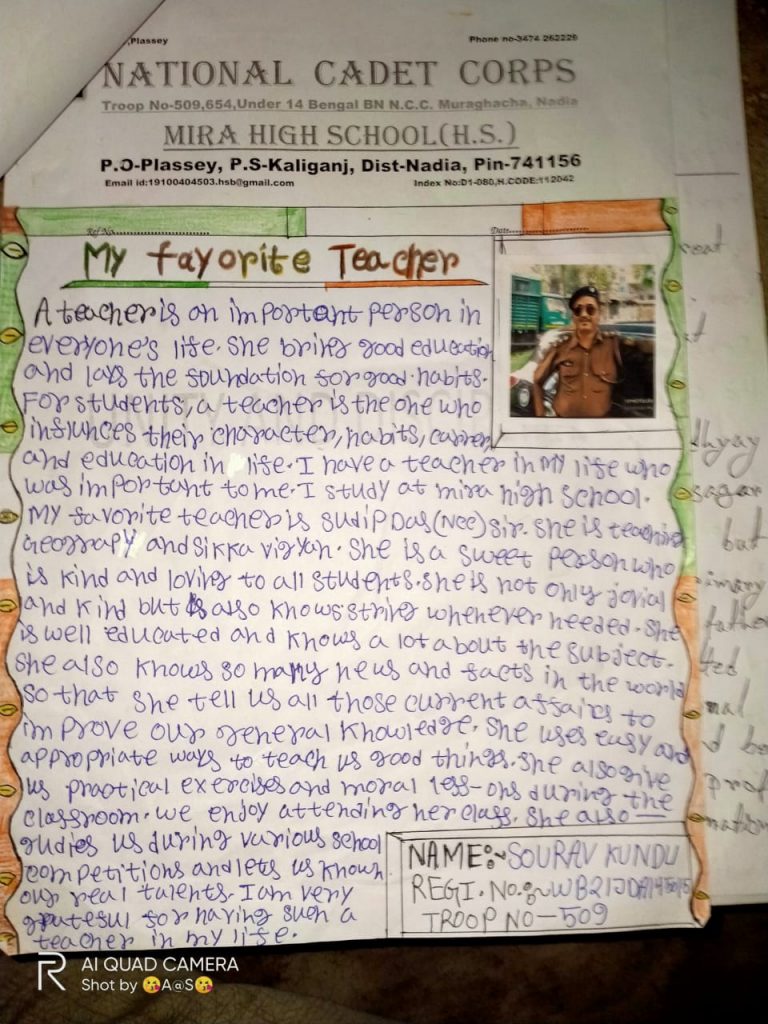 ,Plassey Phone no-3474 262226
NATIONAL CADET CORPS
Troop No-509,654,Under 14 Bengal BN N.C.C. Muraghacha, Nadia
MIRA HIGH SCHOOL(H.S.)
P.O-Plassey, P.S-Kaliganj, Dist-Nadia, Pin-741156
Email id:19100404503.hsb@gmail.com Index No:D1-080,H.CODE:112042
Ref No. Date
My favorite Teacher
A teacher is an important person in
everyone's life. She bring good education
and lays the foundation for good habits.
For students, a teacher is the one who
influnces their character, habits, carrer
and education in life. I have a teacher in my life who
was important to me. I study at mira high school.
My favorite teacher is sudip Das(Ncc) sir. she is teaching
Geograpy and sikka vigyan. She is a sweet person who
is kind and loving to all students. she is not only jovial
and kind but is also knows string whenever needed. She
is well educated and knows a lot about the subject.
she also knows so many news and facts in the world
so that she tell us all those current affairs to
improve our general knowledge. She uses easy and
appropriate ways to teach us good things. she also give
us practical exercises and moral less-ons during the
classroom. we enjoy attending her class. She also —
gudies us during various school
competitions and lets us known
our real talents. I am very
gratesul for having such a
teacher in my life.
NAME:~SOURAV KUNDU
REGI. No.:~WB21JDA
TROOP NO-509
but
AI QUAD CAMERA
Shot by 😘A@S😘